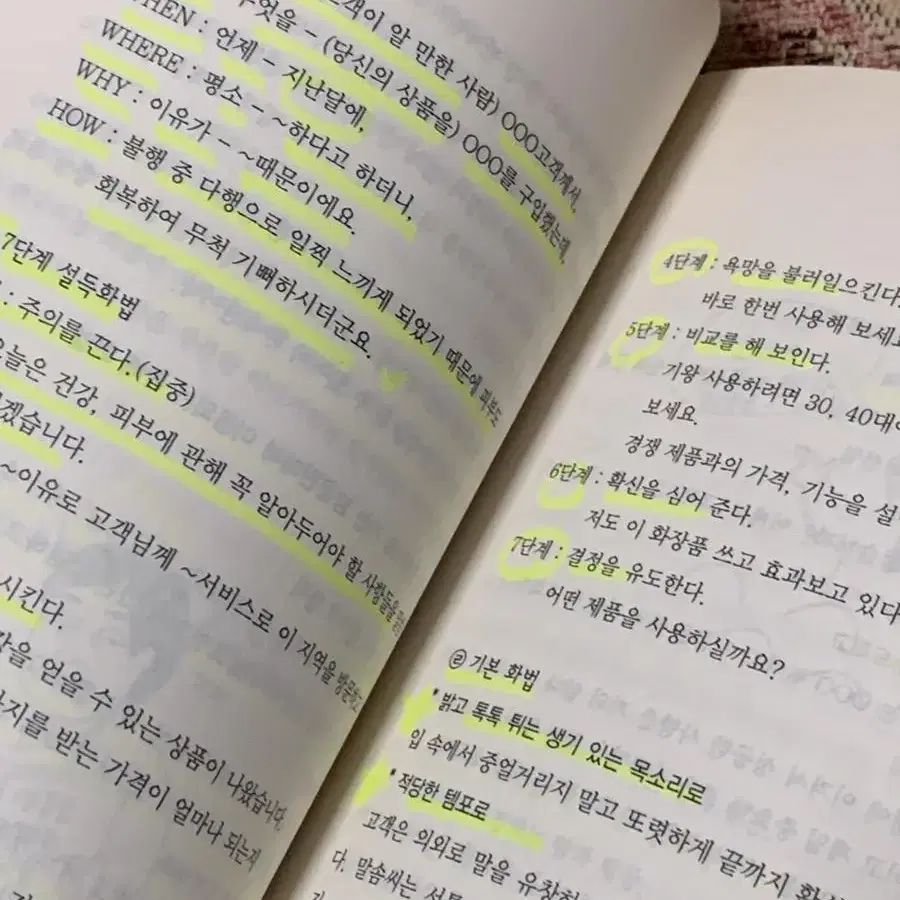 고객이 알 만한 사람) OOO고객께서,
WHEN : 언제 - 지난달에,
무엇을 - (당신의 상품을) OOO를 구입했는데,
WHERE : 평소 - ~하다고 하더니,
WHY : 이유가 - ~때문이에요.
HOW : 불행 중 다행으로 일찍 느끼게 되었기 때문에 피부도
회복하여 무척 기뻐하시더군요.
7단계 설득화법
: 주의를 끈다.(집중)
오늘은 건강, 피부에 관해 꼭 알아두어야 할 사람들을
겠습니다.
~이유로 고객님께 ~서비스로 이 지역을 방문하고
시킨다.
을 얻을 수 있는 상품이 나왔습니다.
지를 받는 가격이 얼마나 되는지
4단계 : 욕망을 불러일으킨다.
바로 한번 사용해 보세요
5단계 : 비교를 해 보인다.
기왕 사용하려면 30, 40대
보세요.
경쟁 제품과의 가격, 기능을 설
6단계 : 확신을 심어 준다.
저도 이 화장품 쓰고 효과보고 있다
7단계 : 결정을 유도한다.
어떤 제품을 사용하실까요?
㉣ 기본 화법
* 밝고 톡톡 튀는 생기 있는 목소리로
입 속에서 중얼거리지 말고 또렷하게 끝까지
* 적당한 템포로
고객은 의외로 말을 유창하
다. 말솜씨는 서툴